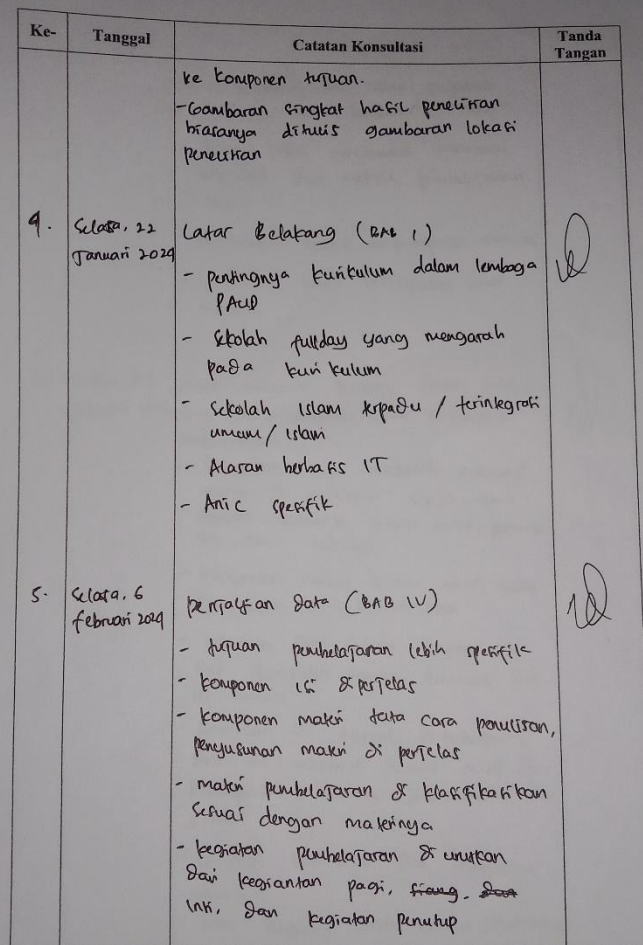 Ke- Tanggal Catatan Konsultasi Tanda Tangan
ke komponen tujuan.
- Gambaran singkat hasil penelitian
biasanya ditulis gambaran lokasi
penelitian
4. Selasa, 22 Januari 2024
Latar Belakang (BAB I)
- pentingnya kurikulum dalam lembaga
PAUD
- Sekolah fullday yang mengarah
pada kurikulum
- Sekolah Islam terpadu / terintegrasi
umum / Islam
- Alasan berbasis IT
- Anic spesifik
5. Selasa, 6 februari 2024
penyajian data (BAB IV)
- tujuan pembelajaran lebih spesifik
- komponen isi diperjelas
- komponen materi tata cara penulisan,
penyusunan materi di perjelas
- materi pembelajaran di klasifikasikan
sesuai dengan materinya
- kegiatan pembelajaran di urutkan
dari kegiantan pagi, siang. dan
inti, dan kegiatan penutup